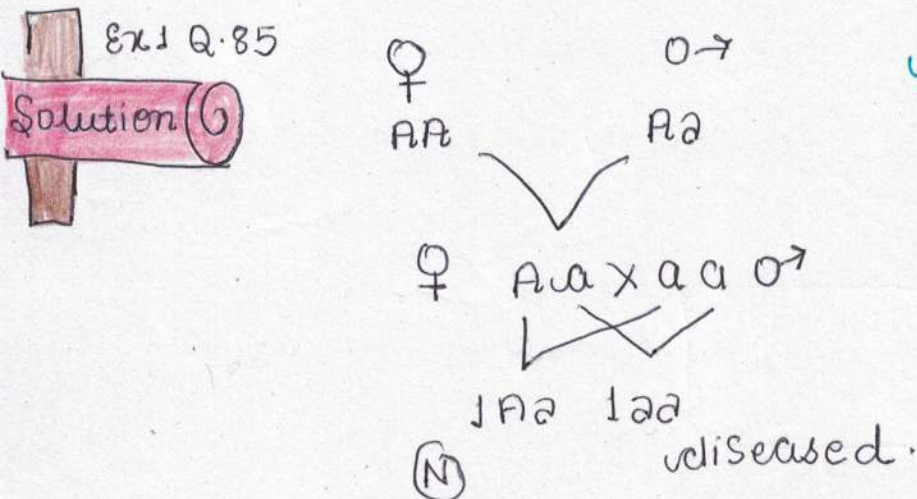 Ex1 Q.85
Solution
♀ ♂
AA Aa
♀ Aa x aa ♂
1Aa 1aa
N diseased.